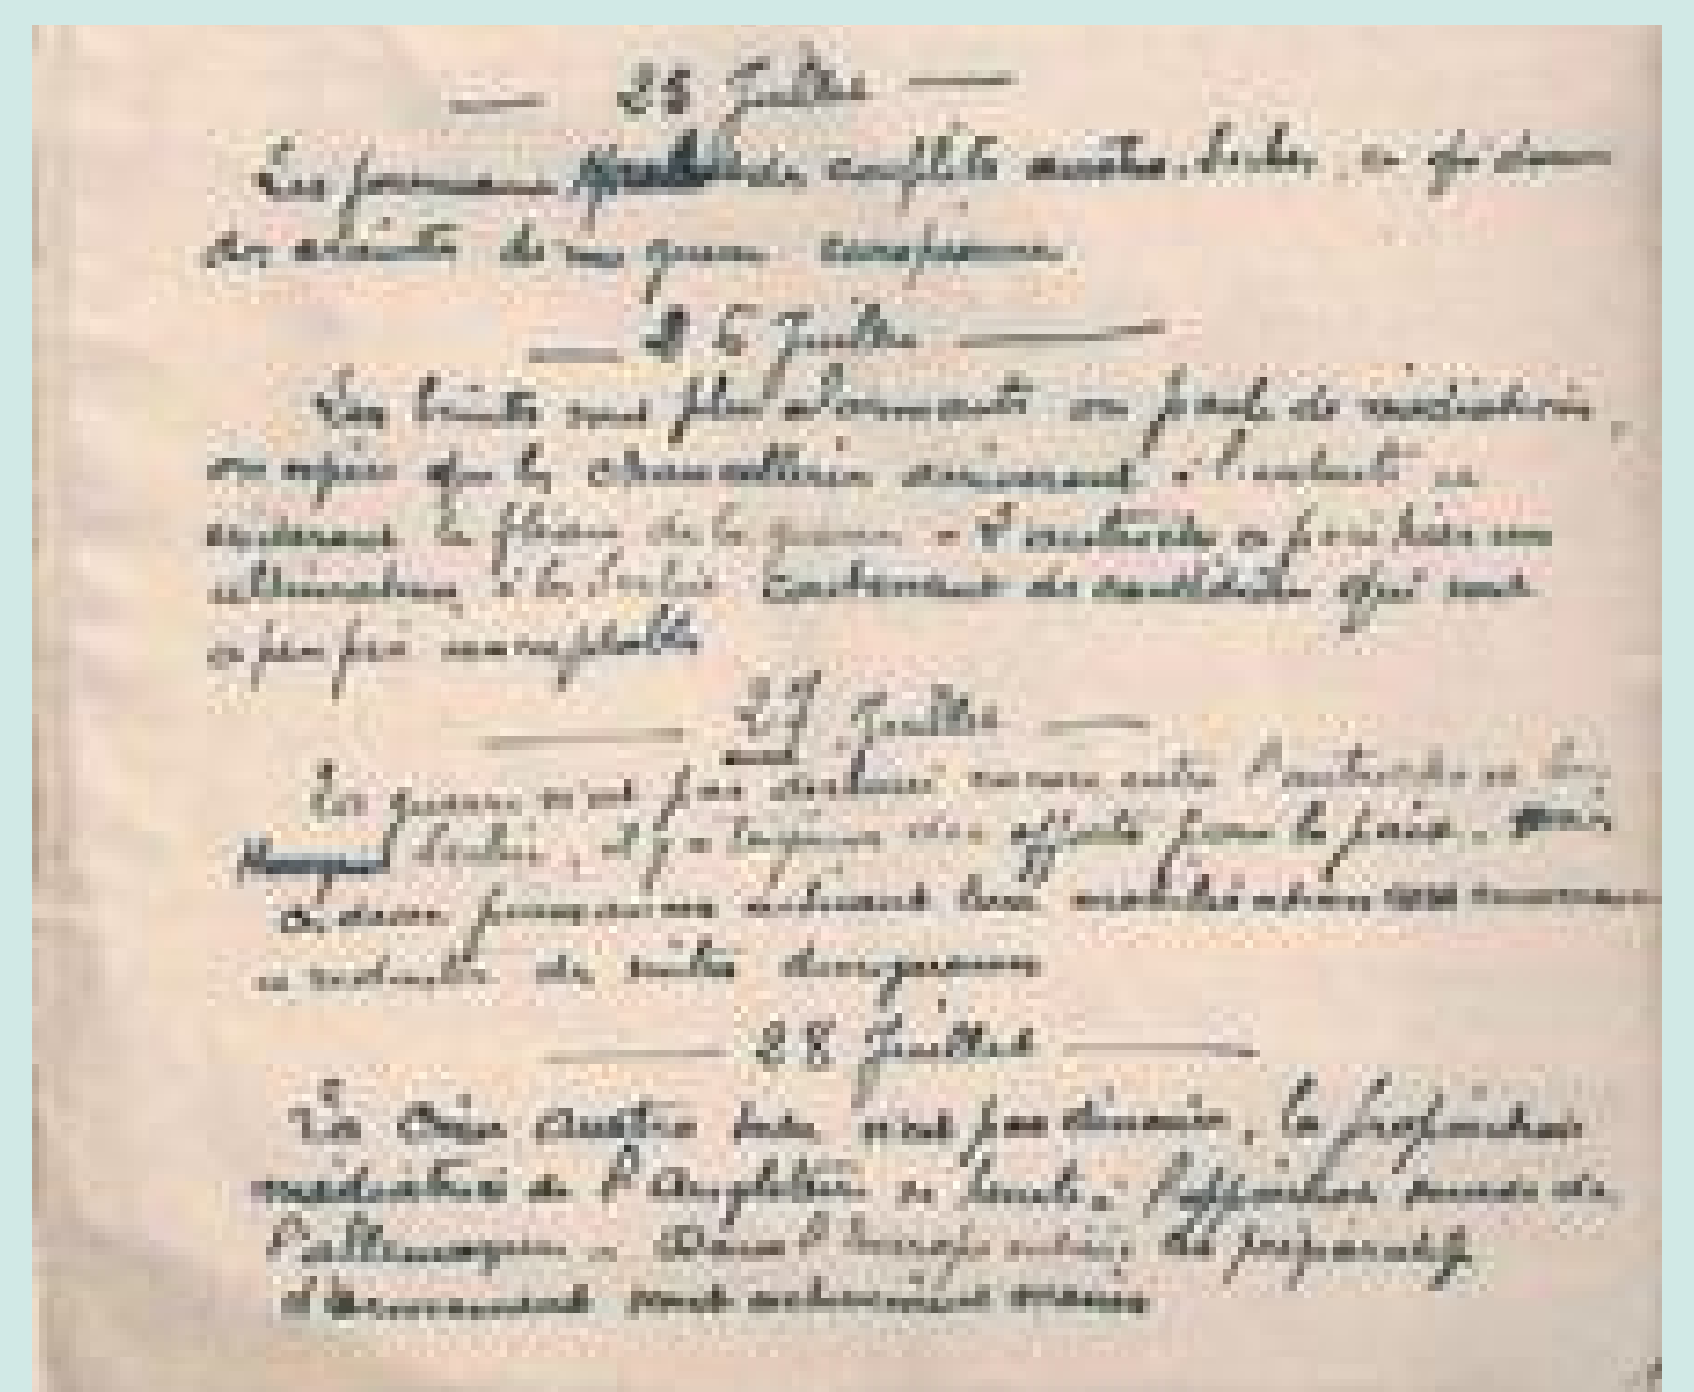 25 Juillet
Les journaux parlent de conflits austro-serbes, ce qui donne
des craintes de une guerre européenne
26 Juillet
Les bruits sont plus alarmants on parle de médiation,
on espère que les chancelleries arriveront à l'entente et
éviteront le fléau de la guerre - L'autriche a posé hier un
ultimatum à la Serbie contenant des conditions qui sont
à peu près inacceptables
27 Juillet
La guerre n'est pas déclarée encore entre l'autriche et la
Serbie, il y a toujours des efforts pour la paix. mais
ces deux puissances activent leur mobilisation
et redoute de suites dangereuses
28 Juillet
La Crise austro serbe n'est pas dénouée, la proposition
médiatrice de l'Angleterre se heurte à l'opposition sourde de
l'allemagne - Dans l'Europe entière des préparatifs
d'armement sont activement menés